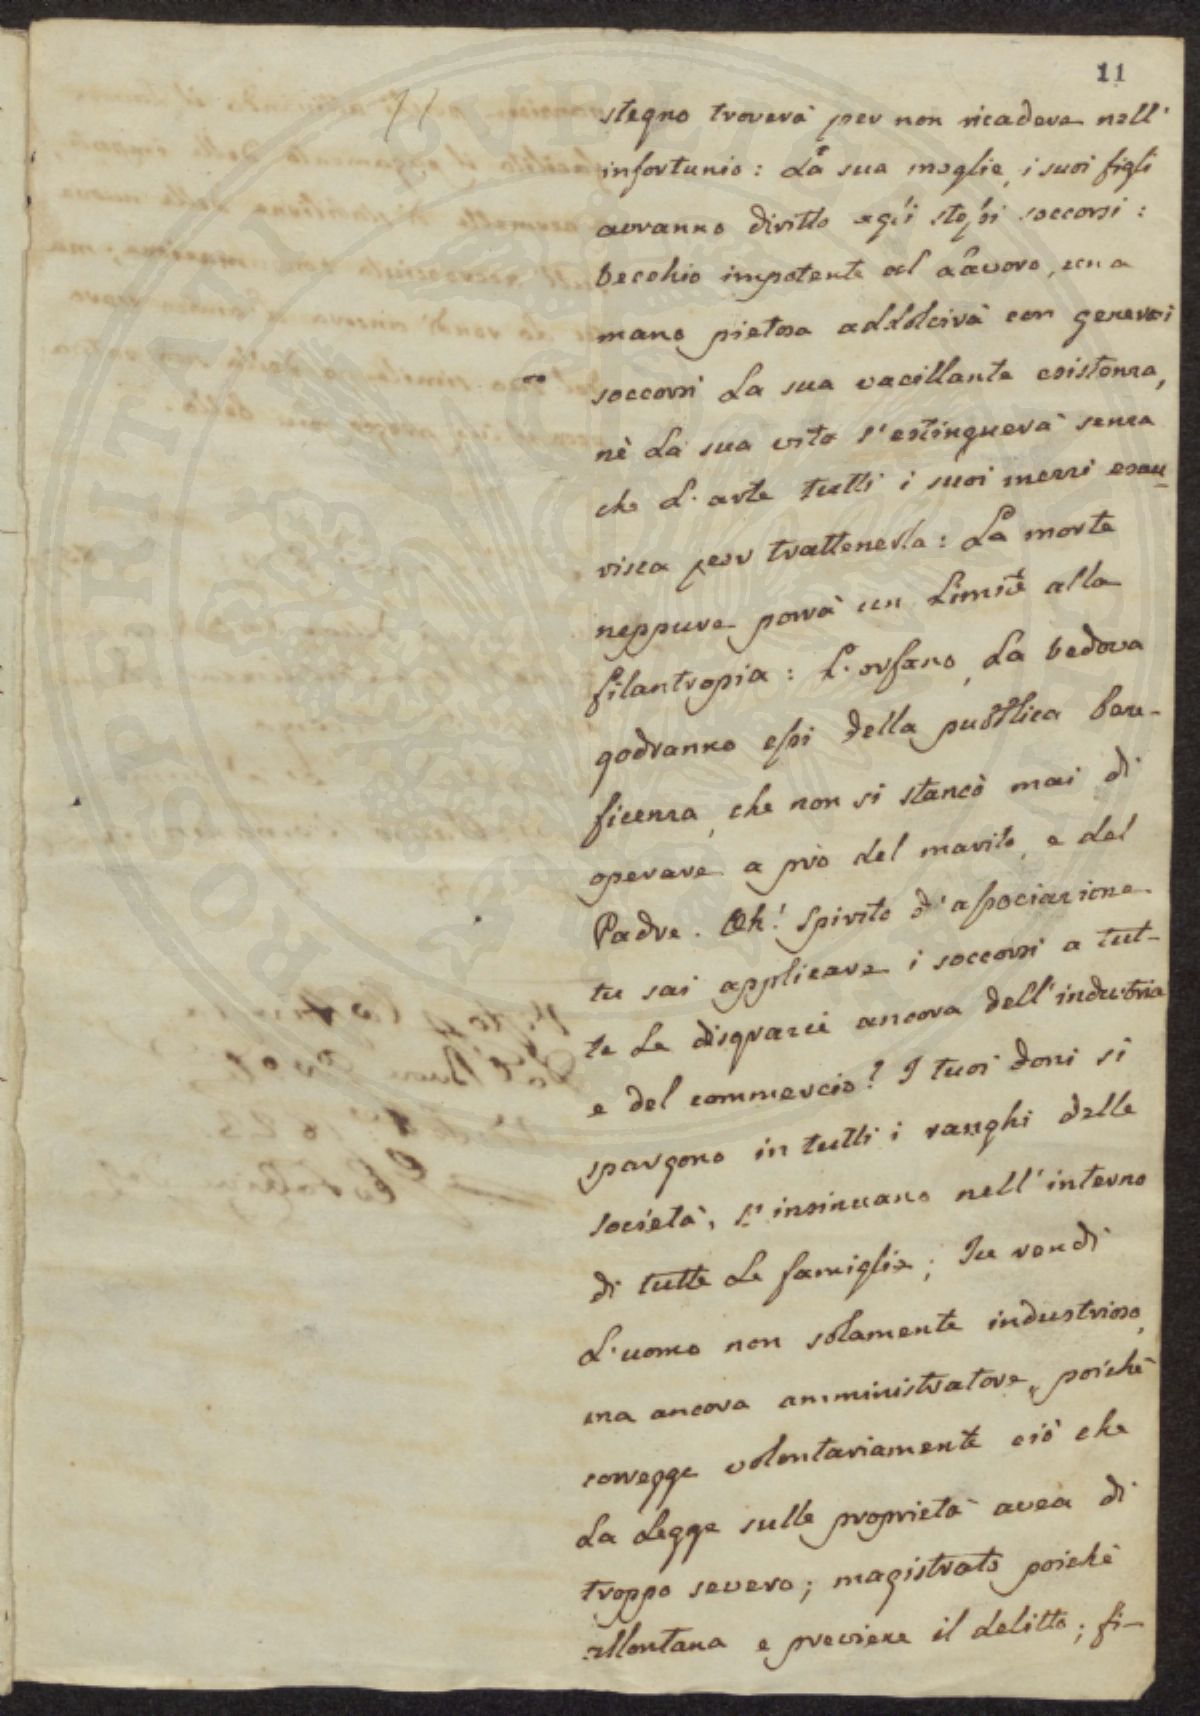 11
stegno troverà per non ricadere nell'
infortunio: La sua moglie, i suoi figli
avranno diritto agl'i stessi soccorsi:
becchio impotente al lavoro, una
mano pietosa addolcirà con generosi
soccorsi La sua vacillante esistenza,
nè La sua vita s'estinguerà senza
che L'arte tutti i suoi mezzi esau_
risca per trattenerla: La morte
neppure porrà un Limite alla
filantropia: L'orfano, La bedova
godranno essi della pubblica bene-
ficenza, che non si stancò mai di
operare a prò del marito, e del
Padre. Oh! Spirito d'associazione
tu sai applicare i soccorsi a tut-
te Le disgrazie ancora dell'industria
e del commercio? I tuoi doni si
spargono in tutti i ranghi delle
società, s'insinuano nell'interno
di tutte Le famiglie; Tu rendi
L'uomo non solamente industrioso,
ma ancora amministratore, poichè
corregge volontariamente ciò che
La Legge sulle proprietà avea di
troppo severo; magistrato poichè
allontana e previene il delitto; fi-